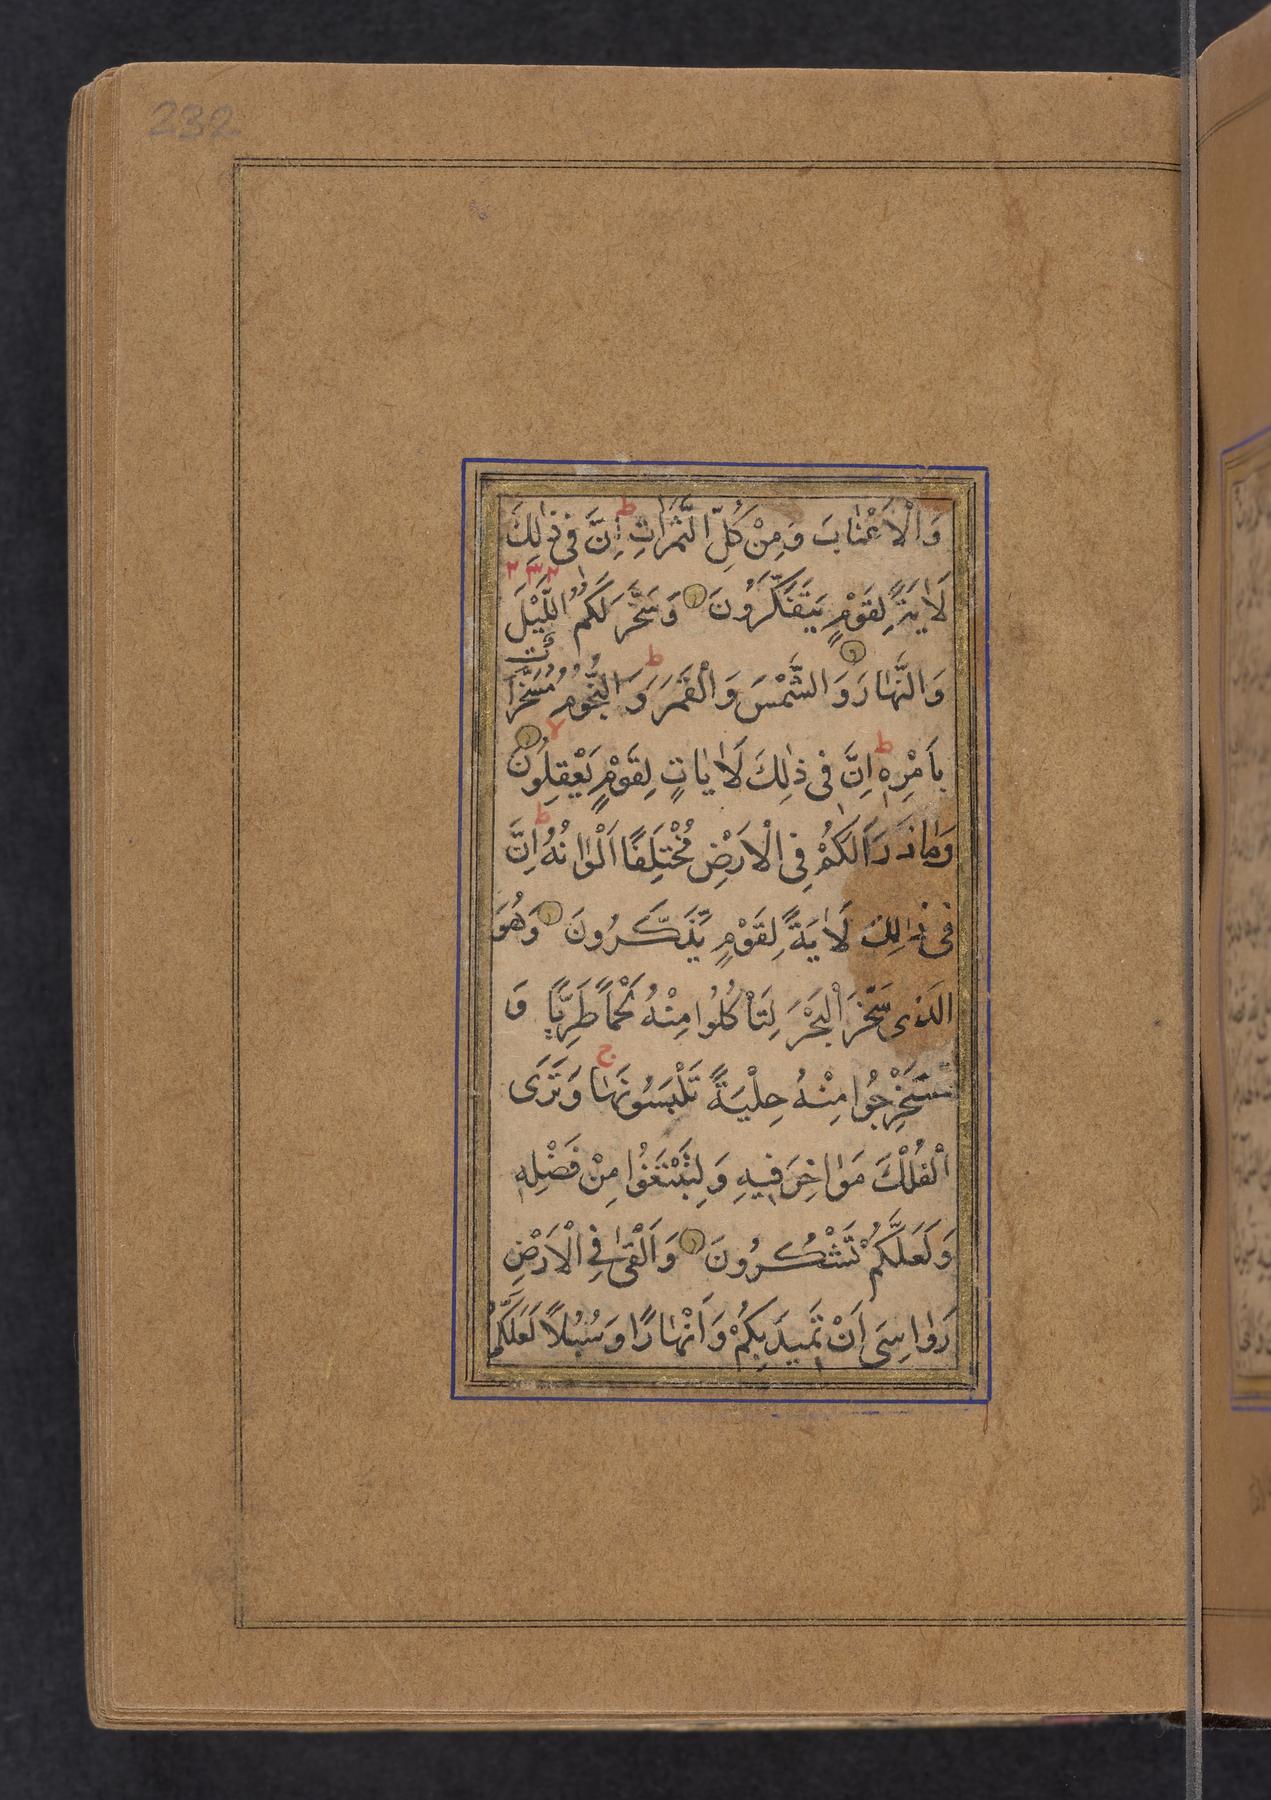 232
وَالْاَعْنٰابَ وَمِنْ كُلِّ الثَّمَرٰاتِ ط اِنَّ فِى ذٰلِكَ
۲۳۲
لَاٰيَةً لِقَوْمٍ يَتَفَكَّرُونَ وَسَخَّرَ لَكُمُ اللَّيْلَ
وَالنَّهٰارَ وَالشَّمْسَ وَالْقَمَرَ ط وَالنُّجُومُ مُسَخَّرٰاتٌ
بِاَمْرِهٖ ط اِنَّ فِى ذٰلِكَ لَاٰيٰاتٍ لِقَوْمٍ يَعْقِلُونَ لا
وَمٰا ذَرَاَ لَكُمْ فِى الْاَرْضِ مُخْتَلِفًا اَلْوٰانُهُ ط اِنَّ
فِى ذٰلِكَ لَاٰيَةً لِقَوْمٍ يَذَّكَّرُونَ وَهُوَ
الَّذِى سَخَّرَ الْبَحْرَ لِتَاْكُلُوا مِنْهُ لَحْمًا طَرِيًّا وَ
تَسْتَخْرِجُوا مِنْهُ حِلْيَةً تَلْبَسُونَهٰا ج وَتَرَى
الْفُلْكَ مَوٰاخِرَ فِيهِ وَلِتَبْتَغُوا مِنْ فَضْلِهٖ
وَلَعَلَّكُمْ تَشْكُرُونَ وَاَلْقٰى فِى الْاَرْضِ
رَوٰاسِىَ اَنْ تَمِيدَ بِكُمْ وَاَنْهٰارًا وَسُبُلًا لَعَلَّكُمْ